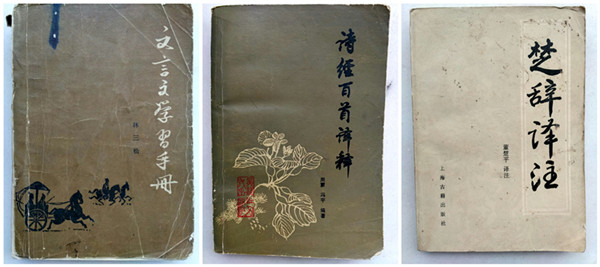 文言文学习手册
诗经百首译释
冯宇 编著
楚辞译注
董楚平 译注
上海古籍出版社